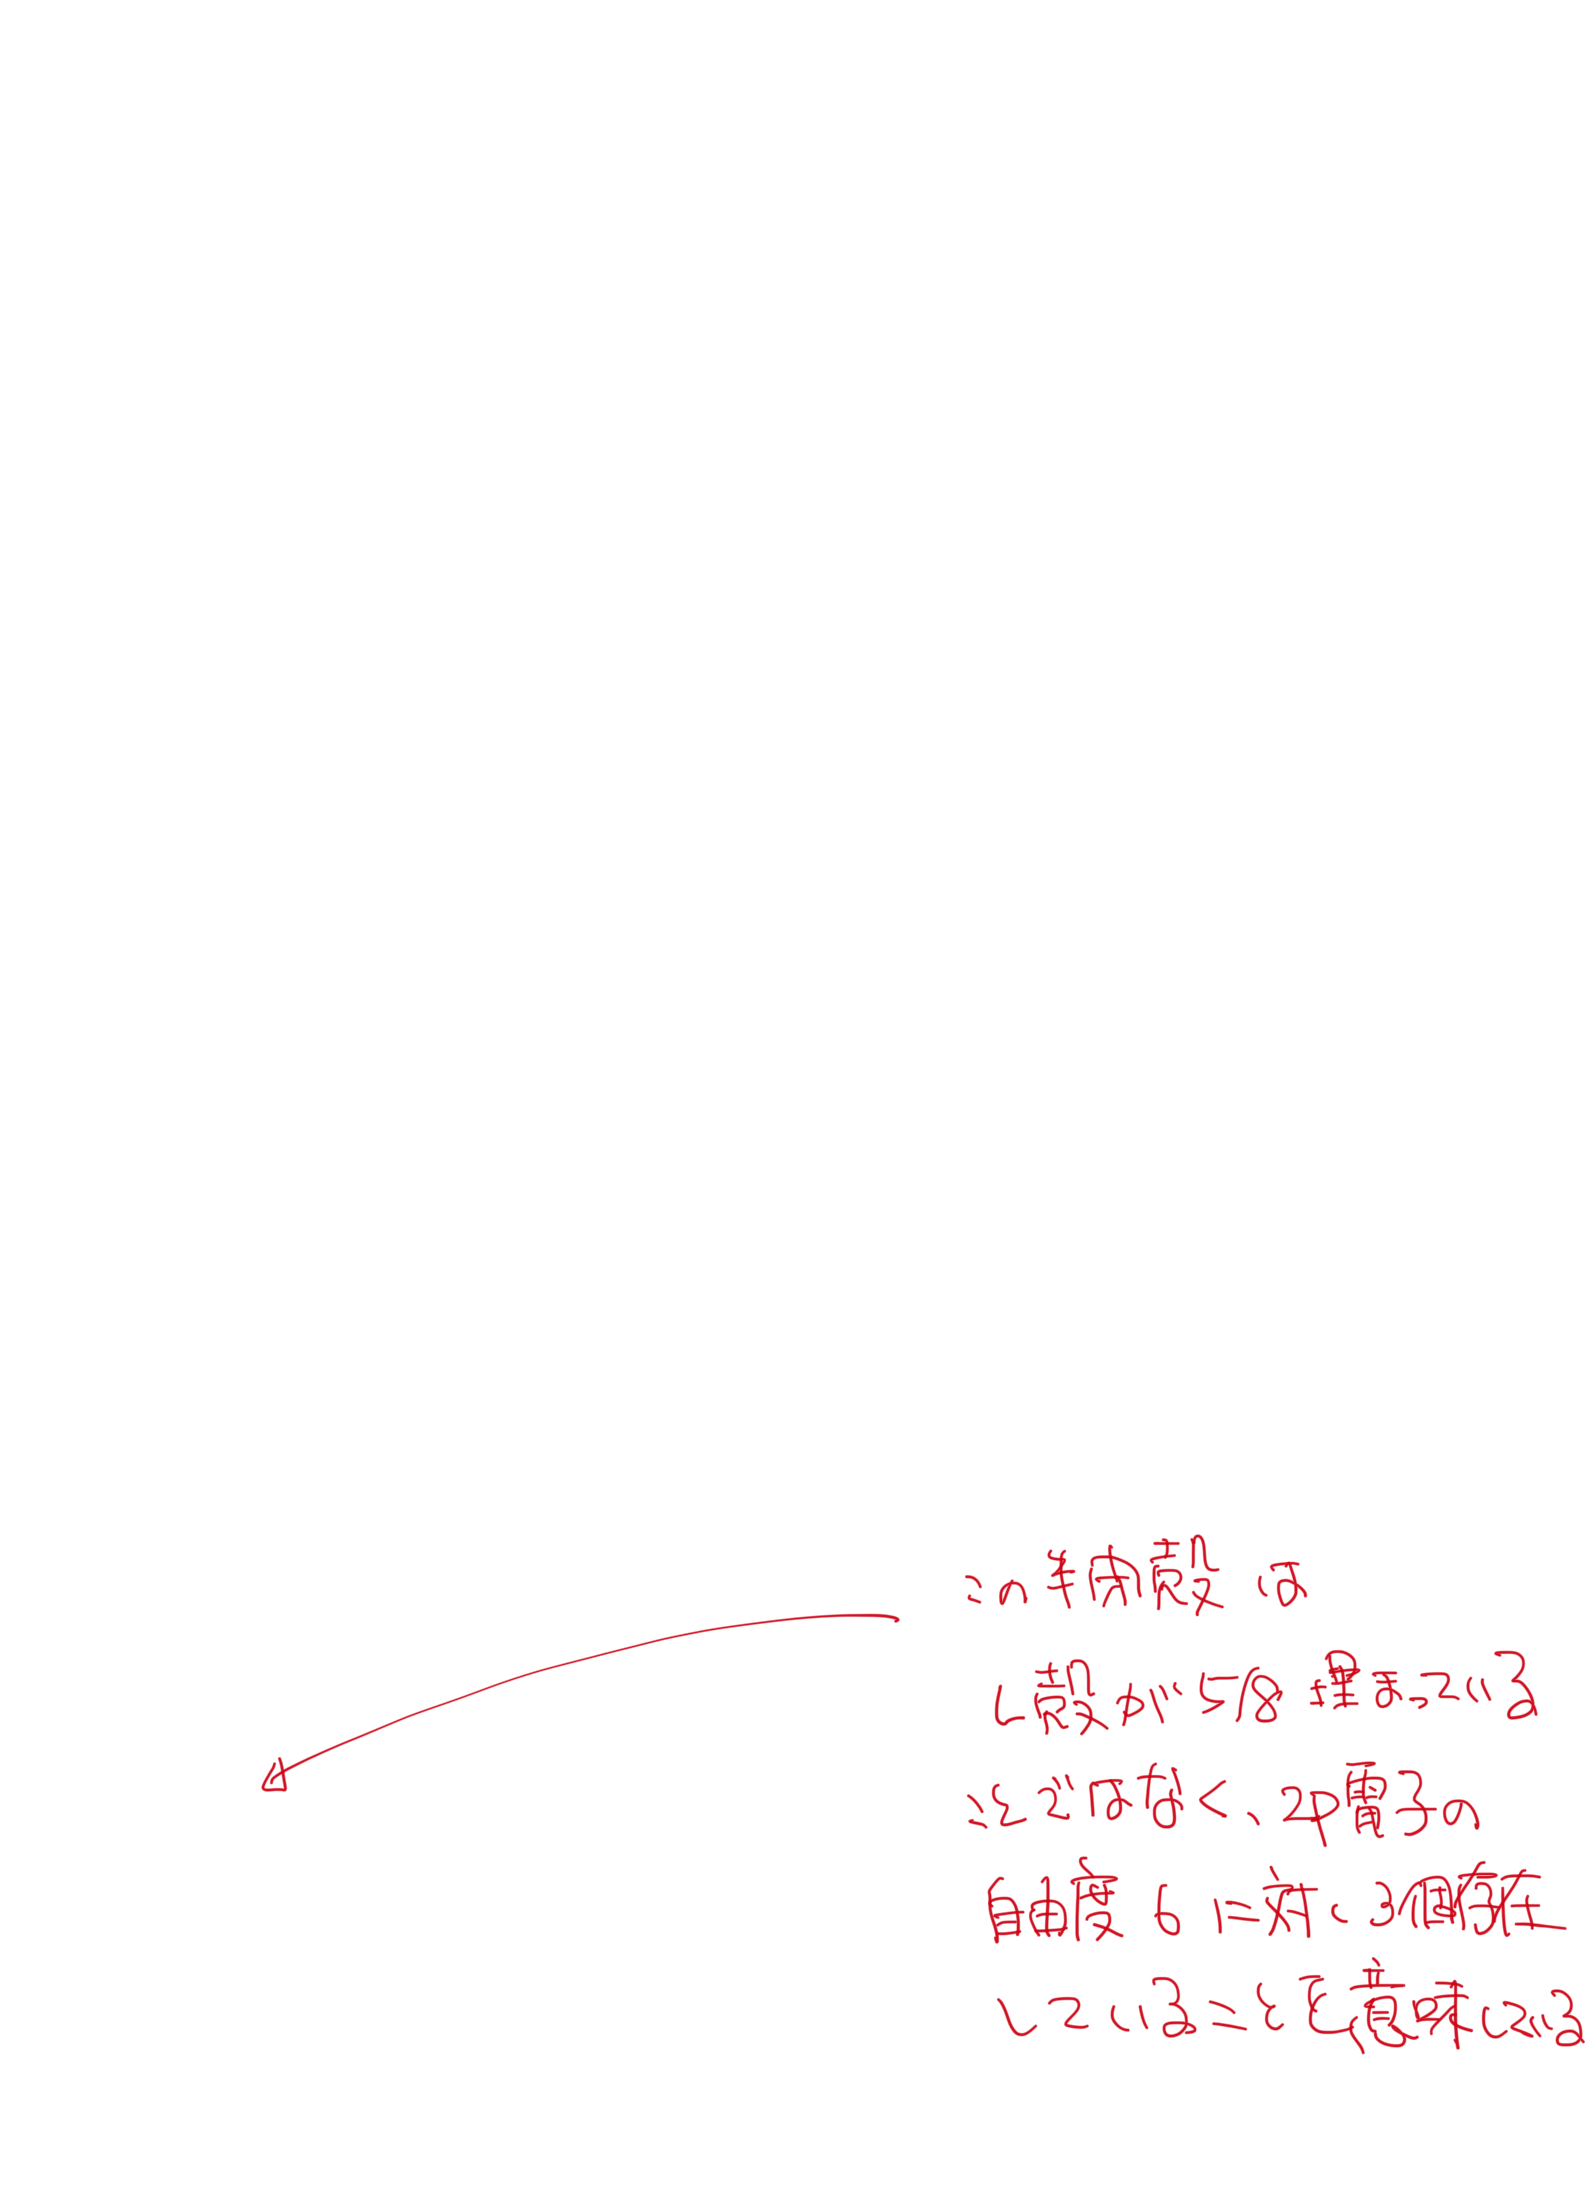 この半閉殻は
L殻が5/8埋まっている
ことではなく、2p電子の
自由度6に対し3個存在
していることを意味している